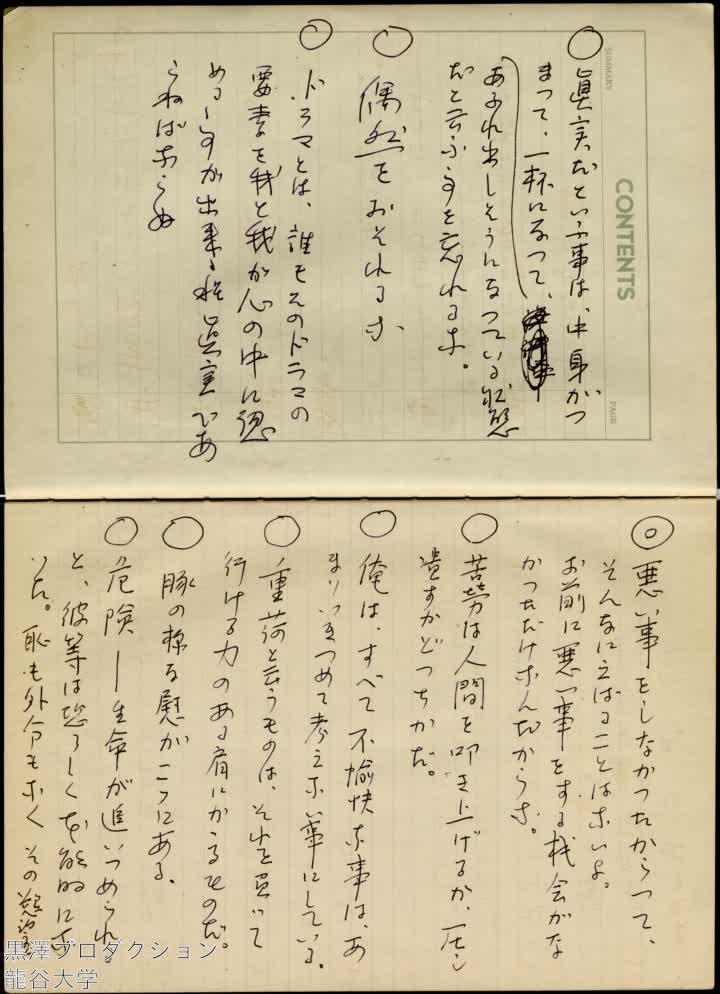 SUMMARY
CONTENTS
PAGE
○ 眞実だといふ事は、中身がつ
まつて、一杯になつて、
あふれ出しそうになつている状態
だと云ふ事を忘れるな。
○ 偶然をおそれるな
○ ドラマとは、誰もそのドラマの
要素を我と我が心の中に認
める事が出来る程眞実であ
らねばならぬ
◎ 悪い事をしなかつたからつて、
そんなにえばることはないよ。
お前に悪い事をする機会がな
かつただけなんだからな。
○ 苦労は人間を叩き上げるか、圧し
潰すかどつちかだ。
○ 俺は、すべて不愉快な事は、あ
まりつきつめて考えない事にしている。
○ 重荷と云うものは、それを負つて
行ける力のある肩にかゝるものだ。
○ 豚の様な慰がこゝにある。
○ 危険―生命が追いつめられる
と、彼等は恐ろしく本能的にな
つた。恥も外分もなく その
黒澤プロダクション
龍谷大学